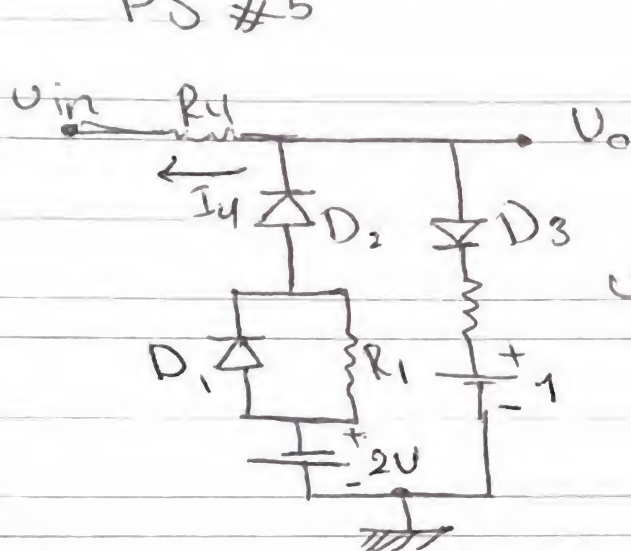 PS #5
Vin R4 Vo
I4 D2 D3
D1 R1 + 1
-
+ 2V
-